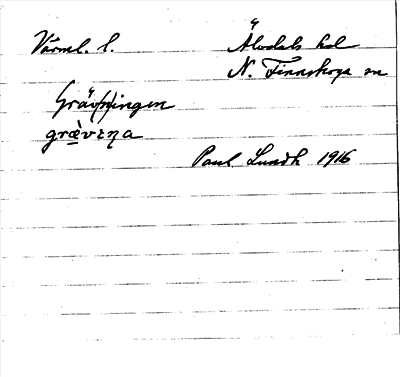 Värml. l. Älvdals hd
N. Finnskoga sn
Gräv(n)ingen
grævıŋa
Paul Lundh 1916